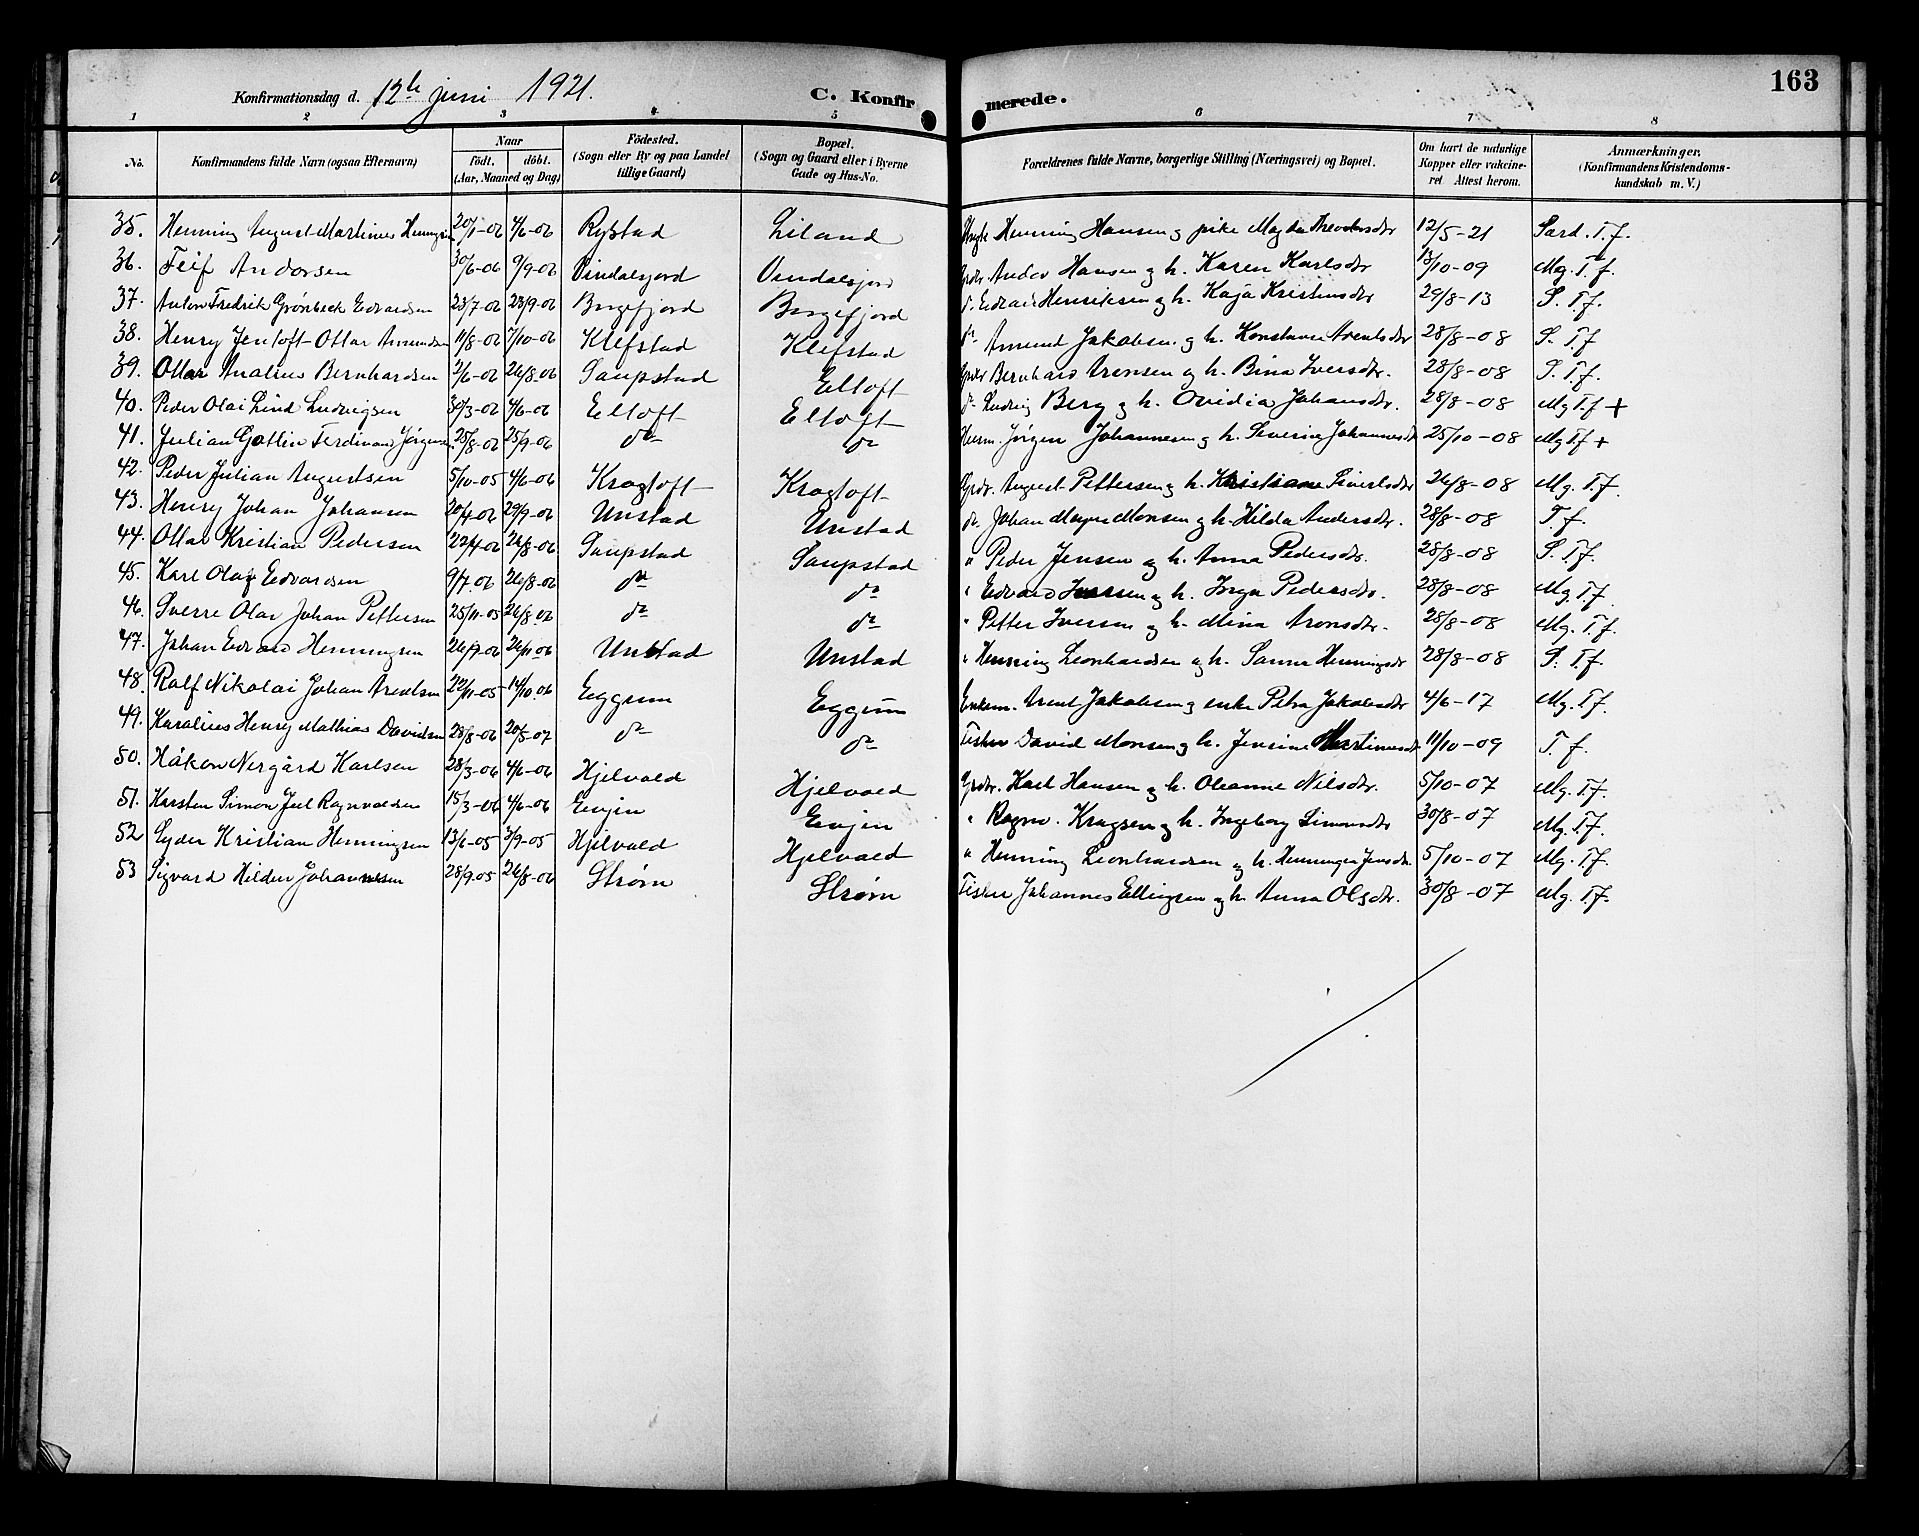 163
Konfirmationsdag d. 12te juni 1921. C. Konfirmerede.
1 2 3 4 5 6 7 8
No. Konfirmandens fulde Navn (ogsaa Efternavn) Naar født, døbt. (Aar, Maaned og Dag) Fødested. (Sogn eller By og paa Landet tillige Gaard) Bopæl. (Sogn og Gaard eller i Byerne Gade og Hus-No. Forældrenes fulde Navne, borgerlige Stilling (Næringsvei) og Bopæl. Om havt de naturlige Kopper eller vakcineret. Attest herom. Anmærkninger, (Konfirmandens Kristendomskundskab m. V.)
35. Henning August Martinus Henningsen 20/1-06 4/6-06 Rystad Liland Henning Hansen og pike Magda Theodorsdtr 12/5-21 Særd. T.f.
36. Leif Andorsen 30/6-06 9/9-06 Vindalsfjord Vendalsfjord Grdr. Andor Hansen og h. Karen Karlsdtr 13/10-09 Mg. T.f.
37. Anton Fredrik Grønbeck Edvardsen 23/7-06 23/9-06 Borgefjord Borgefjord do. Edvard Henriksen og h. Kaja Kristensdtr 29/8-13 S. T.f.
38. Henry Jentoft Ottar Amundsen 11/8-06 7/10-06 Klefstad Klefstad do Amund Jakobsen og h. Konstanse Arentsdtr 28/8-08 S. T.f
39. Ottar Analius Bernhardsen 2/6-06 26/8-06 Saupstad Eltoft Grdbr Bernhard Arensen og h. Bina Iversdtr. 28/8-08 S. T.f.
40. Peder Olai Lind Ludvigsen 30/3-06 4/6-06 Eltoft Eltoft do Ludvig Berg og h. Ovidia Johansdtr. 28/8-08 Mg T.f +
41. Julian Gotlin Ferdinand Jørgensen 25/8-06 25/9-06 do do Jørgen Johannesen og h. Severine Johannesdtr 25/10-08 Mg T.f +
42. Peder Julian Augustsen 5/10-05 4/6-06 Kragtoft Kragtoft Grdr. August Pettersen og h. Kristiane Sivertsdtr 26/8-08 Mg. T.f.
43. Henry Johan Johansen 20/4-06 29/9-06 Unstad Unstad do. Johan Magnus Monsen og h. Hilda Andersdtr. 28/8-08 T.f.
44. Ottar Kristian Pedersen 22/4-06 26/8-06 Saupstad Saupstad " Peder Jensen og h. Anna Pedersdtr. 28/8-08 S. T.f.
45. Karl Olaf Edvardsen 9/7.06 26/8-06 do do " Edvard Iversen og h. Inga Pedersdtr. 28/8-08 Mg. T.f.
46. Sverre Olav Johan Pettersen 25/11-05 26/8-06 do do " Petter Iversen og h. Mina Aronsdtr. 28/8-08 Mg. T.f.
47. Johan Edvard Henningsen 26/9-06 26/11-06 Unstad Unstad " Henning Leonhardsen og h. Sanna Henningsdtr 28/8-08 S. T.f.
48. Rolf Nikolai Johan Arentsen 22/11-05 14/10.06 Eggum Eggum Enkem. Arent Jakobsen og enke Petra Jakobsdtr 4/6-17 Mg. T.f.
49. Karalius Henry Mathias Davidsen 28/8-06 20/5-07 do do Fisker David Monsen og h. Jensine Martinusdtr 11/10-09 T.f.
50. Håkon Nergård Karlsen 28/3-06 4/6-06 Hjelvold Hjelvold Grdr. Karl Hansen og h. Oleanna Nilsdtr. 5/10-07 Mg. T.f.
51. Karsten Simon Juel Ragnvaldsen 15/3-06 4/6-06 Evjen Evjen " Ragnv. Kragsen og h. Ingeborg Simonsdtr 30/8-07 Mg. T.f.
52 Lyder Kristian Henningsen 13/6-05 3/9-05 Hjelvold Hjelvold " Henning Leonhardsen og h. Henninga Jensdtr. 5/10-07 Mg. T.f.
53 Sigvard Hilder Johannesen 28/9.05 26/8-06 Strøm Strøm Fisker Johannes Ellingsen og h. Anna Olsdtr. 30/8-07 Mg. T.f.